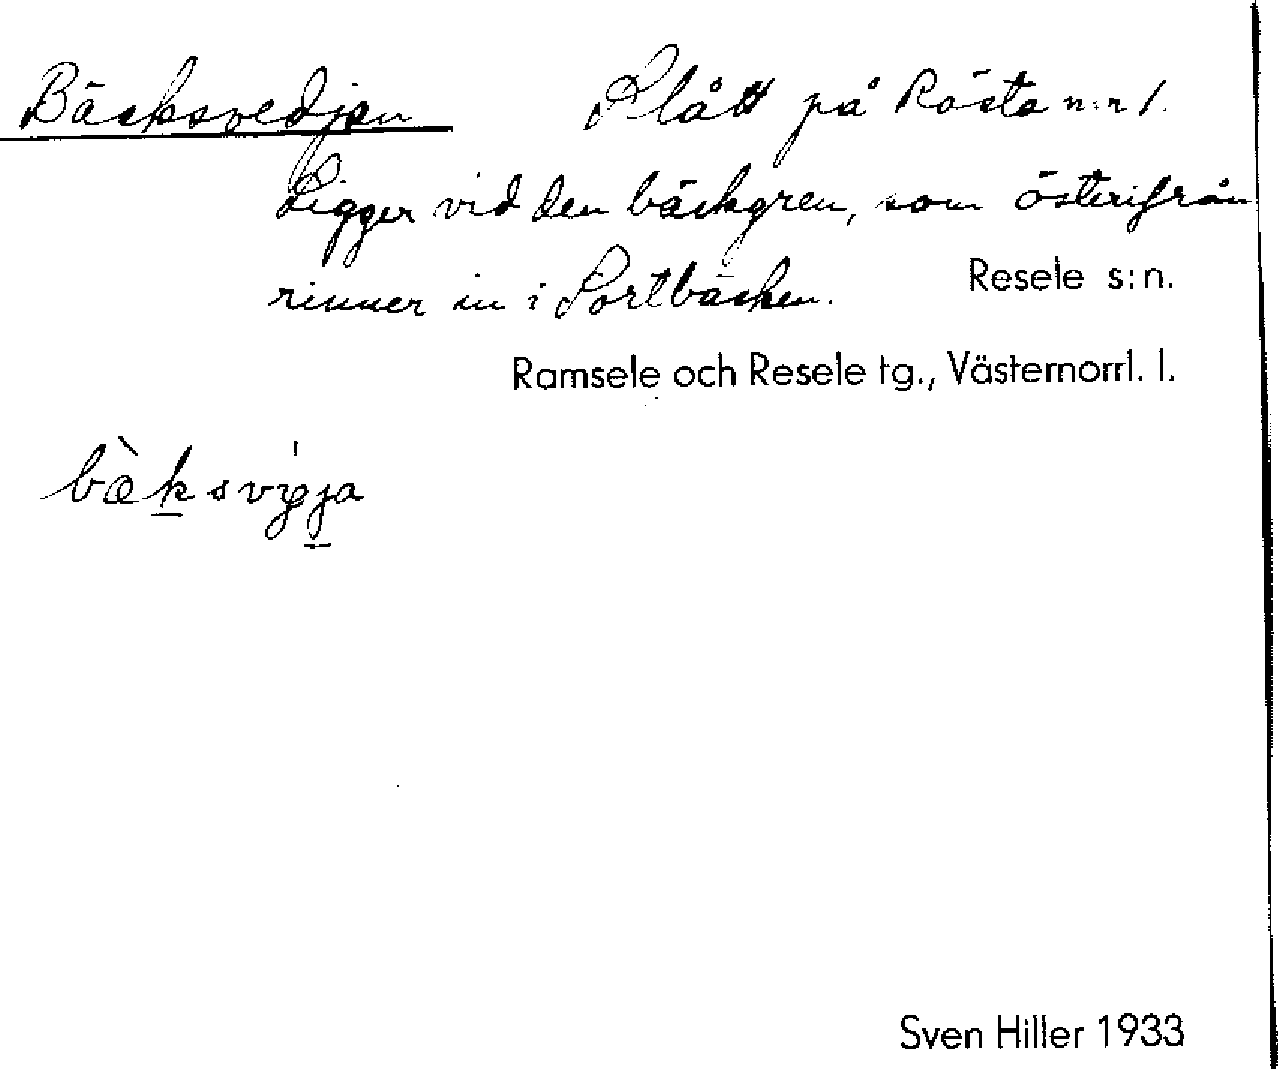 Bäcksvedjan Slått på Rösta n:r 1.
Ligger vid den bäckgren, som österifrån
rinner in i Portbäcken.
Resele s:n.
Ramsele och Resele tg., Västernorrl. l.
Sven Hiller 1933